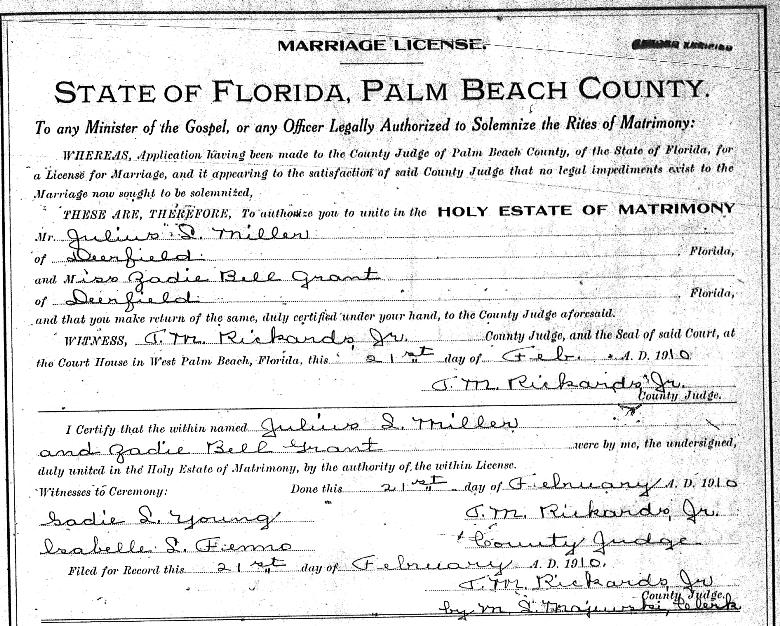 MARRIAGE LICENSE.
STATE OF FLORIDA, PALM BEACH COUNTY.
To any Minister of the Gospel, or any Officer Legally Authorized to Solemnize the Rites of Matrimony:
WHEREAS, Application having been made to the County Judge of Palm Beach County, of the State of Florida, for
a License for Marriage, and it appearing to the satisfaction of said County Judge that no legal impediments exist to the
Marriage now sought to be solemnized,
THESE ARE, THEREFORE, To authorize you to unite in the HOLY ESTATE OF MATRIMONY
Mr. Julius S. Miller
of Deerfield Florida,
and Miss Zadie Bell Grant
of Deerfield Florida,
and that you make return of the same, duly certified under your hand, to the County Judge aforesaid.
WITNESS, J. M. Rickards, Jr. County Judge, and the Seal of said Court, at
the Court House in West Palm Beach, Florida, this 21st day of Feb. A. D. 1910
J. M. Rickards, Jr.
County Judge.
I Certify that the within named Julius S. Miller
and Zadie Bell Grant were by me, the undersigned,
duly united in the Holy Estate of Matrimony, by the authority of the within License.
Witnesses to Ceremony: Done this 21st day of February A. D. 1910
Sadie S. Young J. M. Rickards, Jr.
Isabelle S. County Judge
Filed for Record this 21st day of February A. D. 1910.
J. M. Rickards, Jr
County Judge.
by M. S. Majewski, Clerk